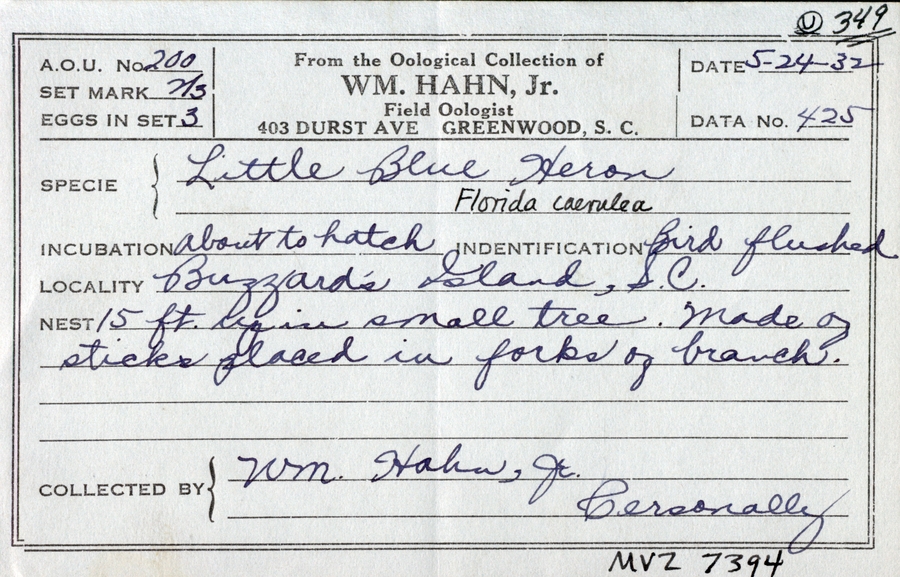 U 349
A.O.U. No. 200
SET MARK 7/3
EGGS IN SET 3
From the Oological Collection of
WM. HAHN, Jr.
Field Oologist
403 DURST AVE GREENWOOD, S. C.
DATE 5-24-32
DATA No. 425
SPECIE Little Blue Heron
Florida caerulea
INCUBATION about to hatch INDENTIFICATION Bird flushed
LOCALITY Buzzard's Island, S.C.
NEST 15 ft. up in small tree. Made of
sticks placed in forks of branch.
COLLECTED BY Wm. Hahn, Jr.
Personally
MVZ 7394